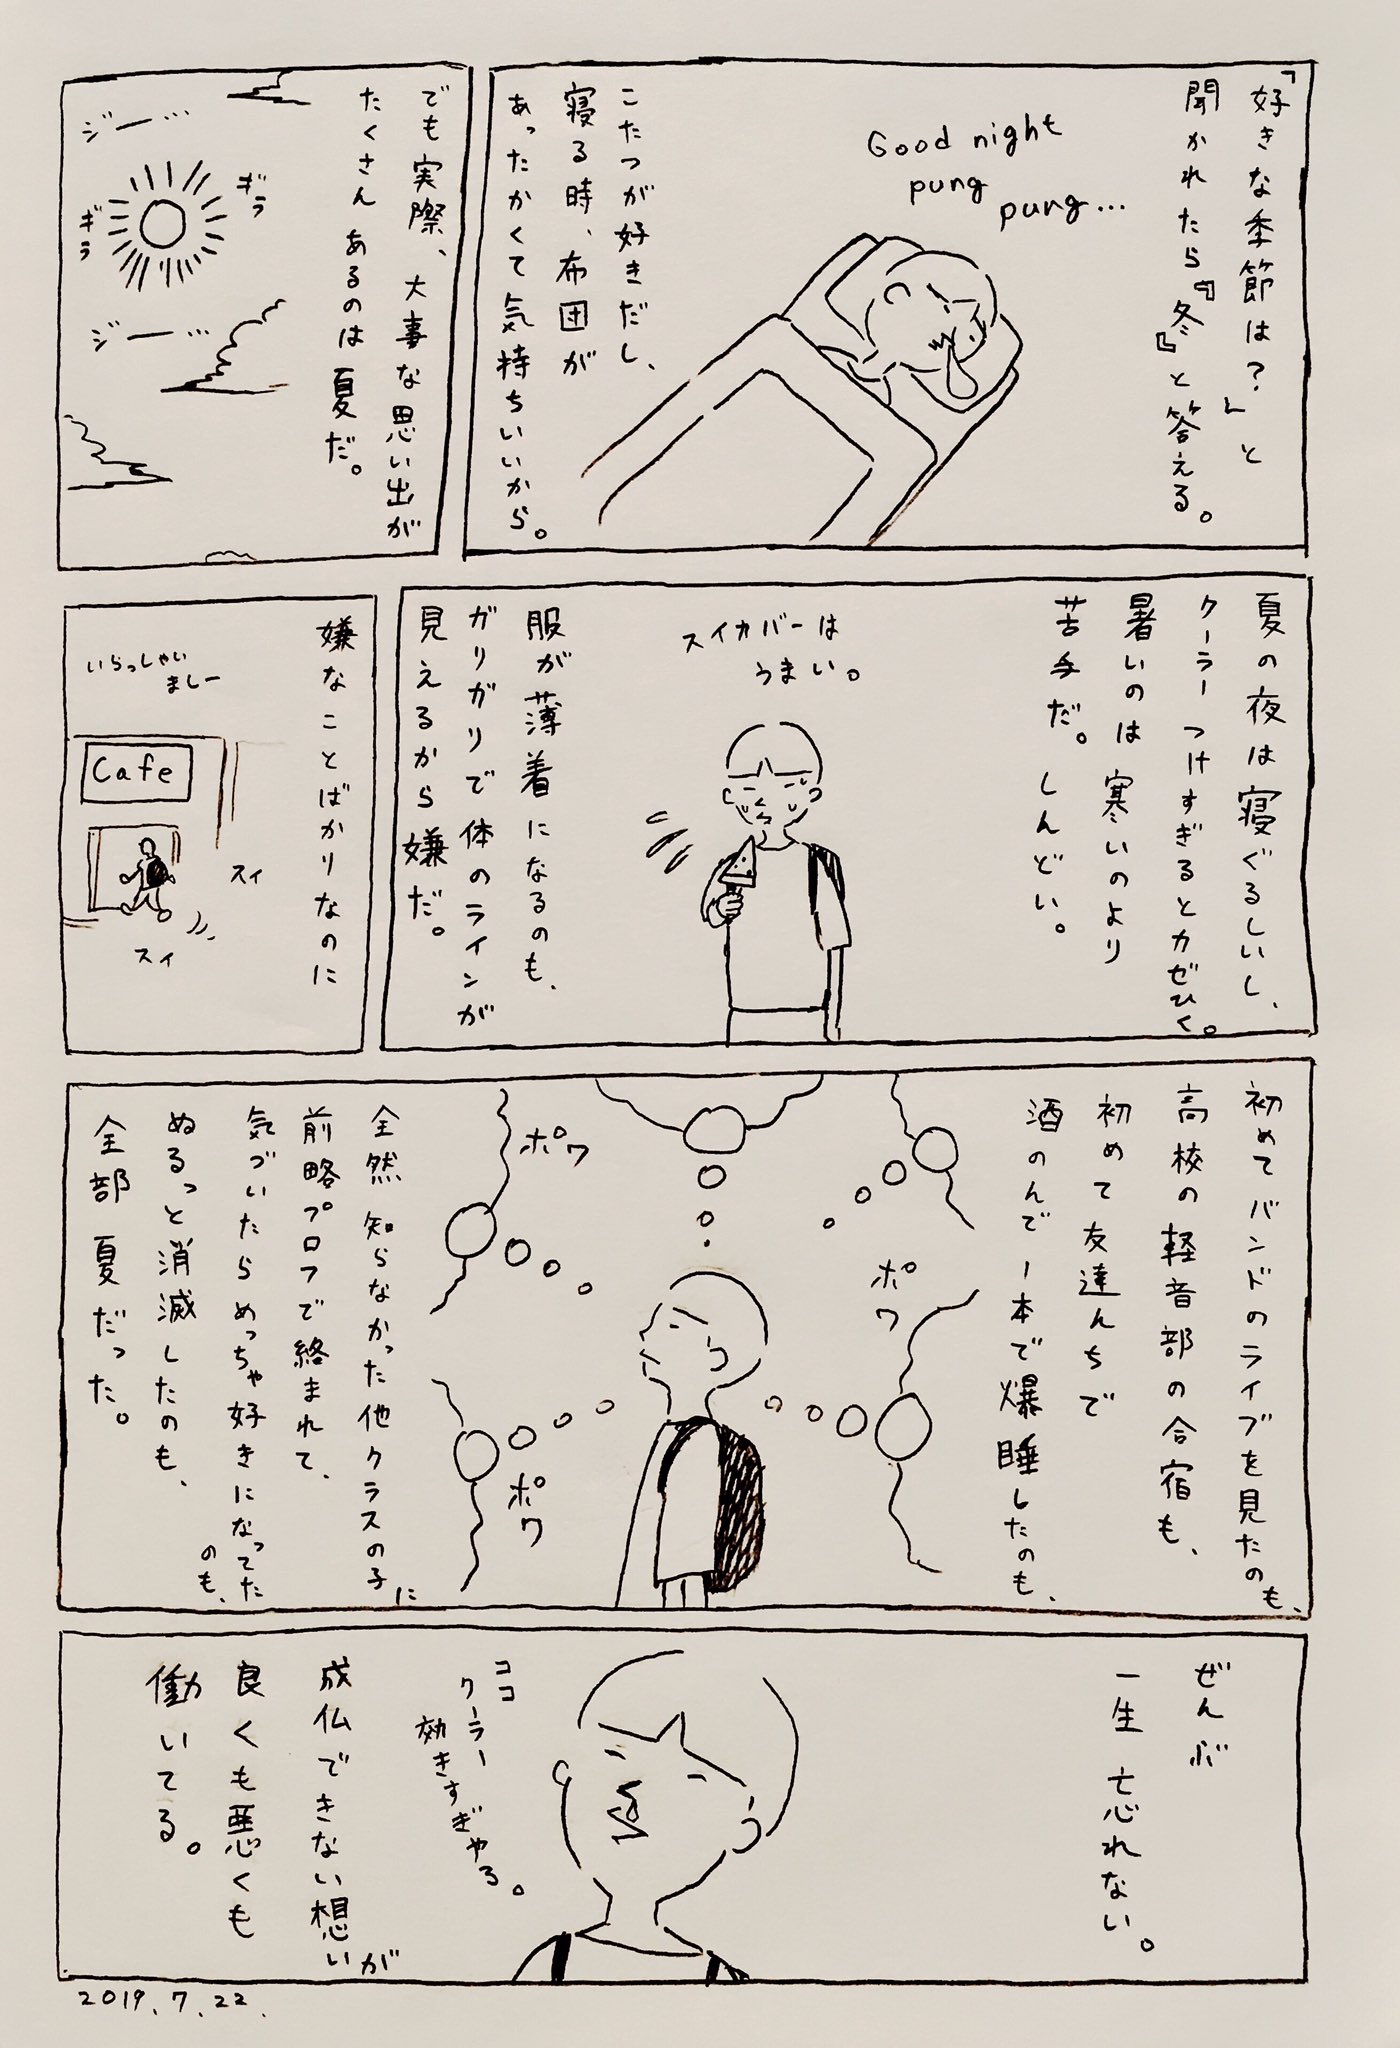 「好きな季節は？」と
聞かれたら『冬』と答える。
Good night
pung
pung...
こたつが好きだし、
寝る時、布団が
あったかくて気持ちいいから。
でも実際、大事な思い出が
たくさんあるのは夏だ。
ジー…
ギラ
ギラ
ジー…
夏の夜は寝ぐるしいし、
クーラーつけすぎるとカゼひく。
暑いのは寒いのより
苦手だ。しんどい。
スイカバーは
うまい。
服が薄着になるのも、
ガリガリで体のラインが
見えるから嫌だ。
嫌なことばかりなのに
いらっしゃい
ましー
Cafe
スイ
スイ
初めてバンドのライブを見たのも、
高校の軽音部の合宿も、
初めて友達んちで
酒のんで1本で爆睡したのも、
ポワ
ポワ
ポワ
全然知らなかった他クラスの子に
前略プロフで絡まれて、
気づいたらめっちゃ好きになってた
のも、
ぬるっと消滅したのも、
全部夏だった。
ぜんぶ
一生忘れない。
ココ
クーラー
効きすぎやろ。
成仏できない想いが
良くも悪くも
働いてる。
2019.7.22.